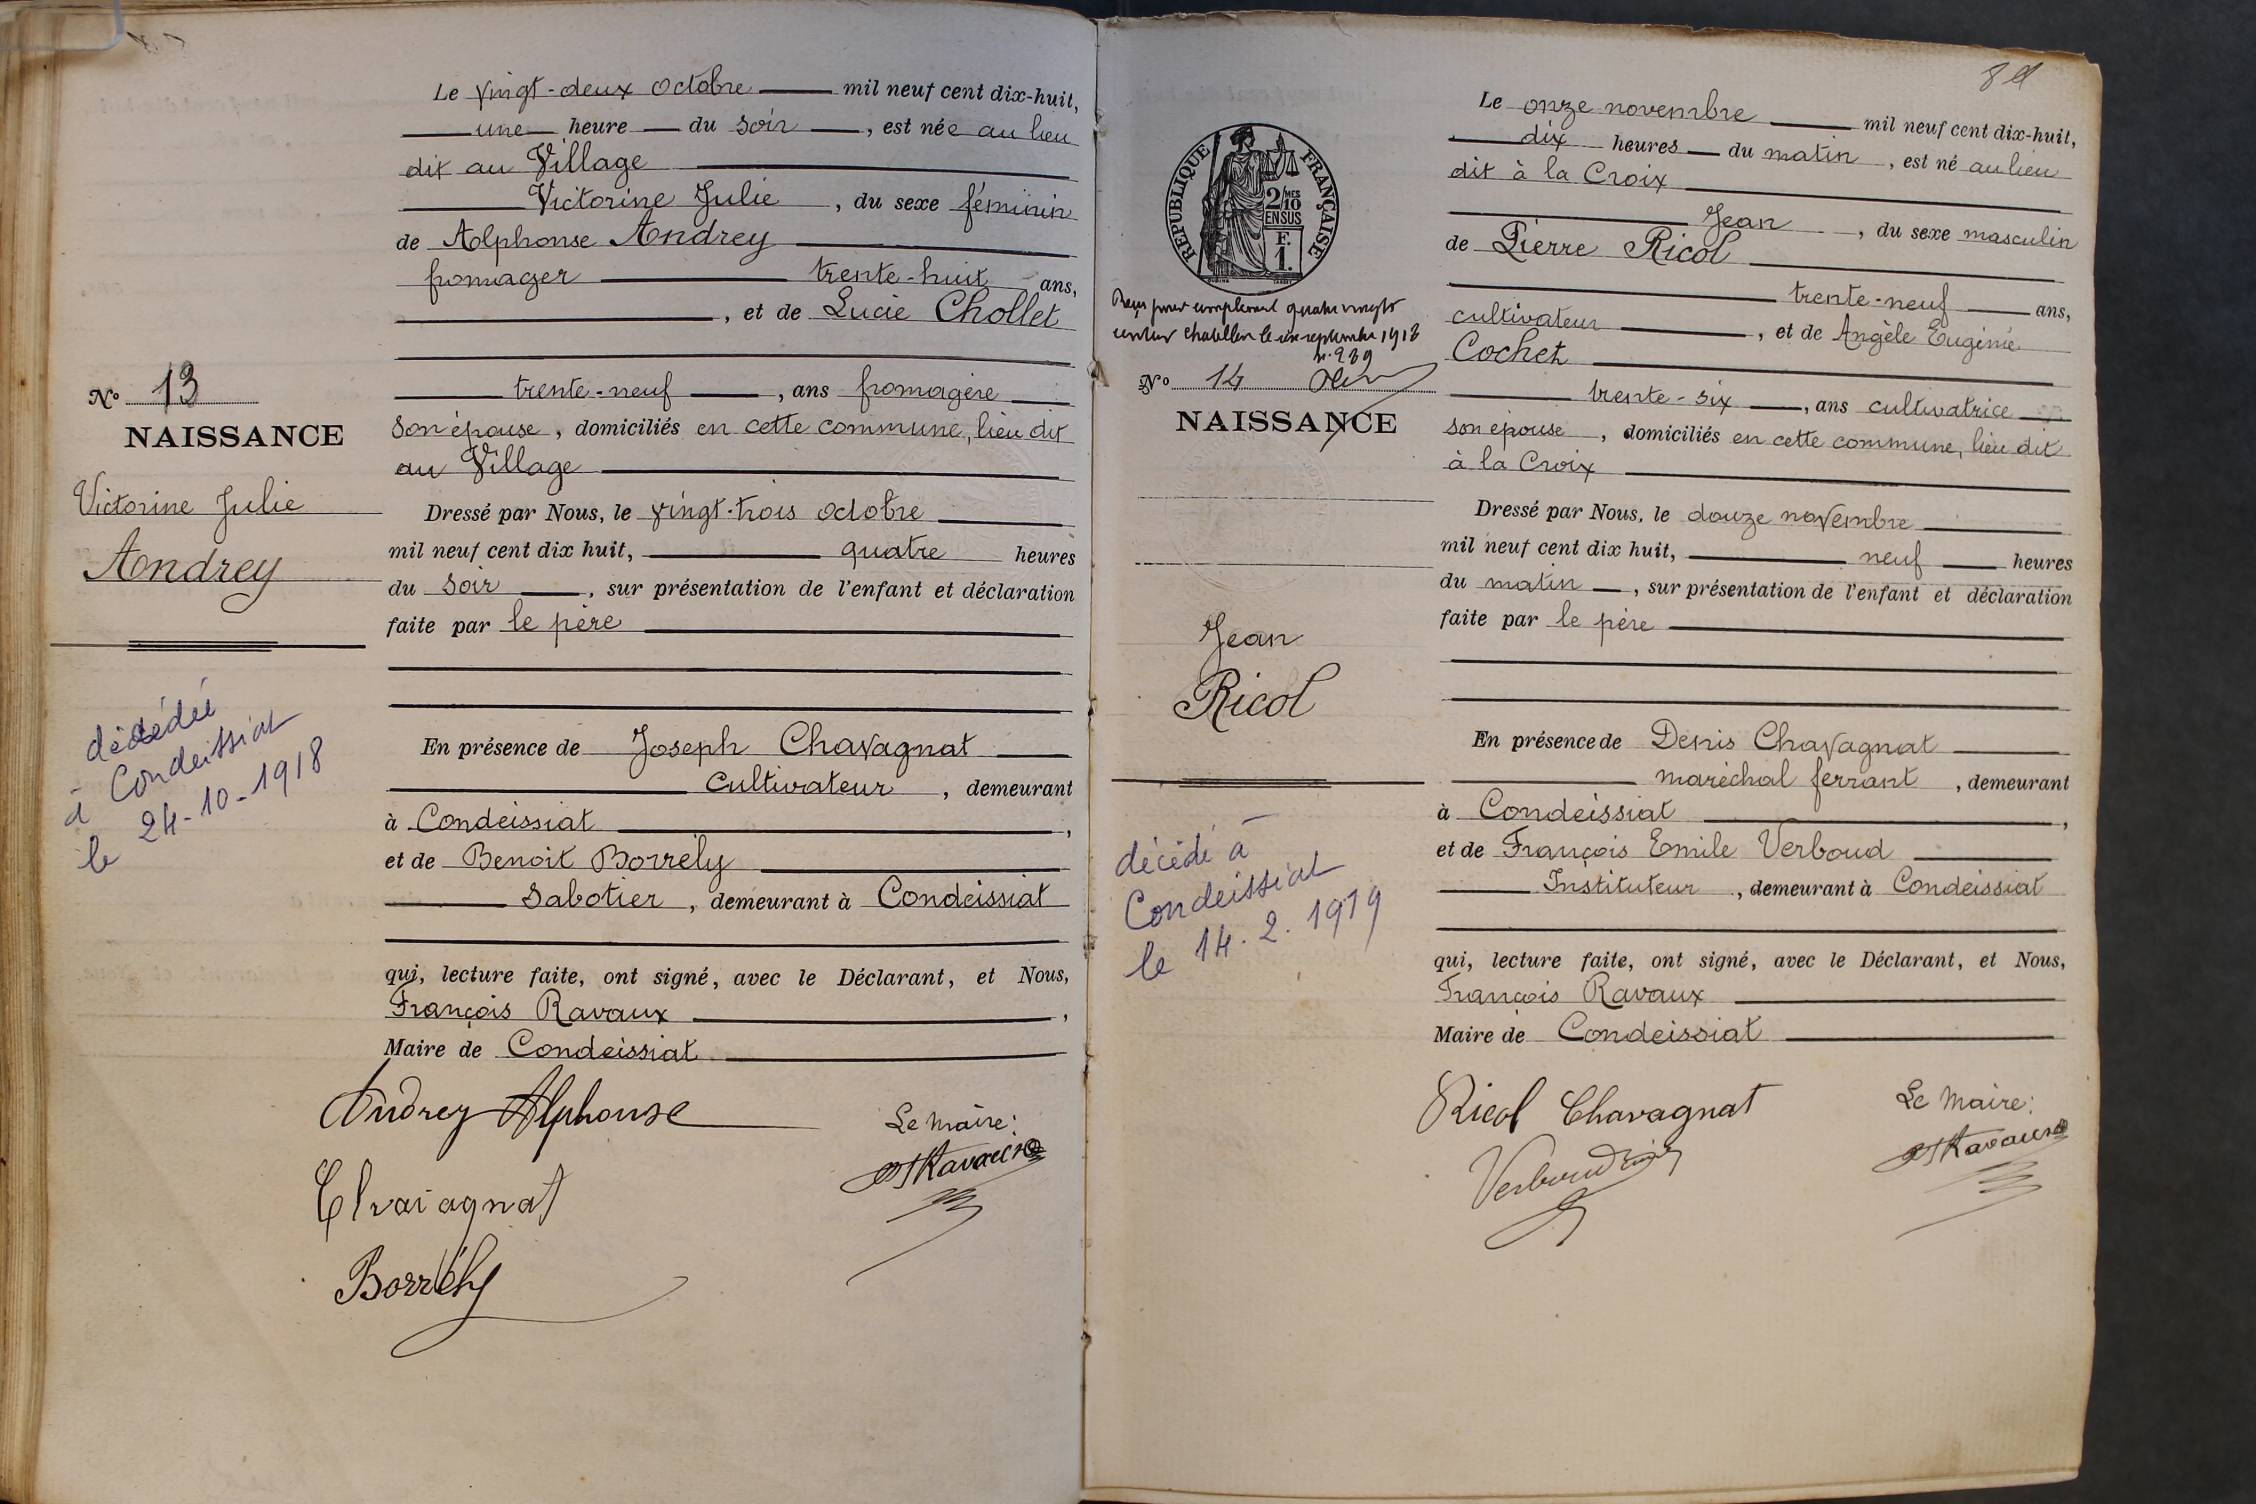 Le vingt-deux octobre mil neuf cent dix-huit,
une heure du soir, est née au lieu
dit au Village
Victorine Julie, du sexe féminin
de Alphonse Andrey
fromager trente-huit ans,
, et de Lucie Chollet
trente-neuf, ans fromagère
son épouse, domiciliés en cette commune, lieu dit
au Village
Dressé par Nous, le vingt-trois octobre
mil neuf cent dix huit, quatre heures
du soir, sur présentation de l'enfant et déclaration
faite par le père
En présence de Joseph Chavagnat
cultivateur, demeurant
à Condeissiat,
et de Benoit Borrély
sabotier, demeurant à Condeissiat
qui, lecture faite, ont signé, avec le Déclarant, et Nous,
François Ravaux,
Maire de Condeissiat
Andrey Alphonse
Le Maire:
Ravaux
Chavagnat
Borrély
No 13
NAISSANCE
Victorine Julie
Andrey
décédée
à Condeissiat
le 24-10-1918
Le onze novembre mil neuf cent dix-huit,
dix heures du matin, est né au lieu
dit à la Croix
Jean, du sexe masculin
de Pierre Ricol
trente-neuf ans,
cultivateur, et de Angèle Eugénie
Cochet
trente-six, ans cultivatrice
son épouse, domiciliés en cette commune, lieu dit
à la Croix
Dressé par Nous, le douze novembre
mil neuf cent dix huit, neuf heures
du matin, sur présentation de l'enfant et déclaration
faite par le père
En présence de Denis Chavagnat
maréchal ferrant, demeurant
à Condeissiat,
et de François Emile Verboud
Instituteur, demeurant à Condeissiat
qui, lecture faite, ont signé, avec le Déclarant, et Nous,
François Ravaux
Maire de Condeissiat
Ricol Chavagnat
Le Maire:
Ravaux
Verboud
RÉPUBLIQUE FRANÇAISE
2/10 MES
EN SUS
F.
1.
Reçu pour complément quatre vingts
centimes Chatillon le septembre 1918
No 14
NAISSANCE
Jean
Ricol
décédé à
Condeissiat
le 14.2.1919